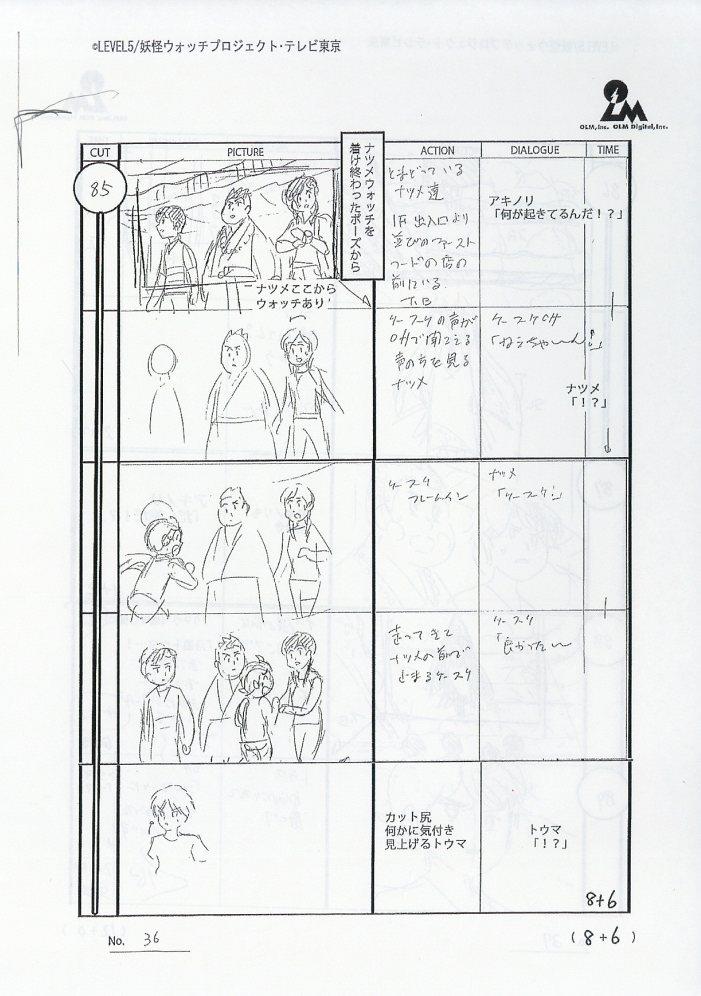 ©LEVEL5/妖怪ウォッチプロジェクト・テレビ東京
OLM
OLM, Inc. OLM Digital, Inc.
CUT
PICTURE
ACTION
DIALOGUE
TIME
85
ナツメウォッチを
着け終わったポーズから
ナツメここから
ウォッチあり
とまどっている
ナツメ達
1F 出入口より
並びのファースト
フードの店の
前にいる
アキノリ
「何が起きてるんだ！？」
ケースケの声が
OFFで聞こえる
声の方を見る
ナツメ
ケースケOFF
「ねえちゃーん
ナツメ
「！？」
ケースケ
フレームイン
ナツメ
「ケースケ」
走ってきて
ナツメの前で
止まるケースケ
ケースケ
「良かったー
カット尻
何かに気付き
見上げるトウマ
トウマ
「！？」
8+6
No. 36
(8+6)